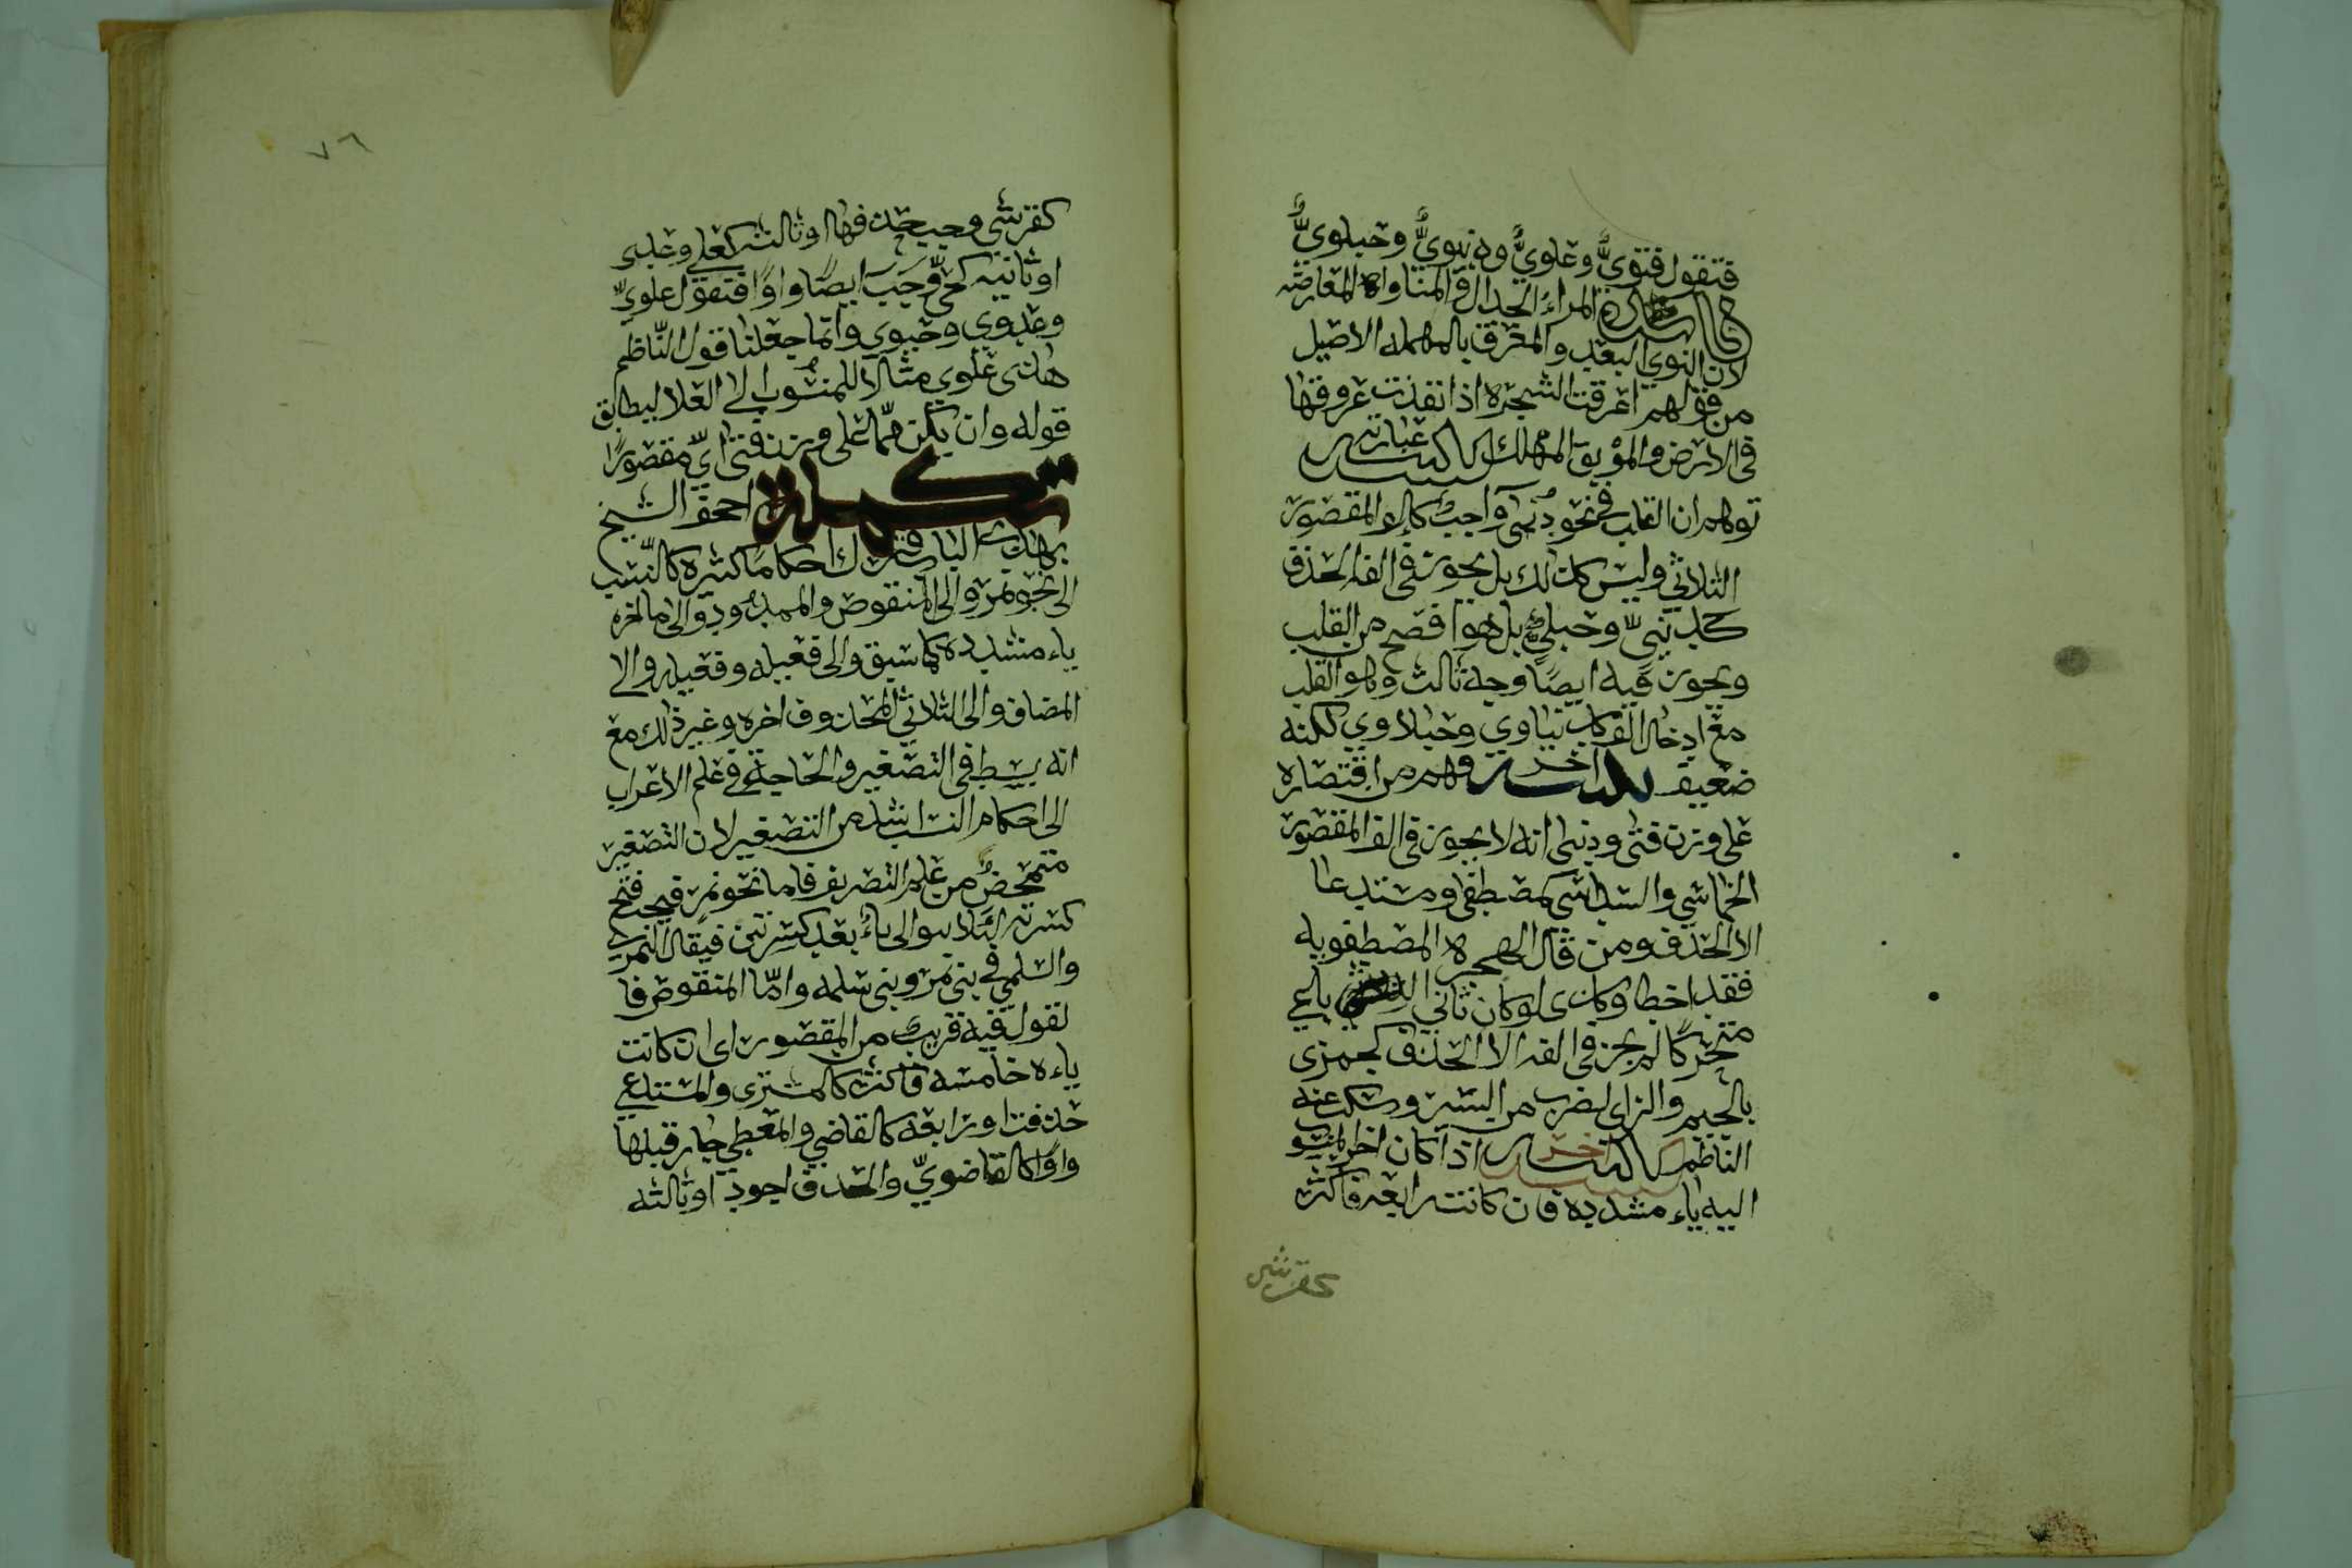 فتقول فتويٌّ وعلويٌّ ودنيويٌّ وحبلويٌّ
فائدة المراء الجدال والمناواه المعارضه
لان النوى البعد والمعرق بالمهمله الاصيل
من قولهم اعرقت الشجره اذا نفذت عروقها
فى الارض والموبق المهلك تنبيه عبارته
توهم ان القلب فى نحو دنيى واجب كالمقصور
الثلاثي وليس كذلك بل يجوز فى الفه الحذف
كدنييّ وحبليّ بل هو افصح من القلب
ويجوز فيه ايضًا وجه ثالث وهو القلب
مع ادخال الف كدنياوي وحبلاوي لكنه
ضعيف تنبيه اخر وفهم من اقتصاره
على وزن فتى ودنيى انه لا يجوز فى الف المقصور
الخماسي والسداسي كمصطفى ومستدعا
الا الحذف ومن قال الهجرة المصطفويه
فقد اخطا وكذى لو كان ثاني الرباعي
متحركًا لم يجز فى الفه الا الحذف كجمزى
بالجيم والزاى لضرب من السير وسكت عنه
الناظم تنبيه اخر اذا كان اخر المنسو
اليه ياء مشدده فان كانت رابعه فاكثر
كقرشي
٧٦
كقرشي وجب حذفها او ثالثه كعلي وعدى
او ثانيه كحيّ وجب ايضًا واوًا فتقول علويّ
وعدوي وحيوي وانما جعلنا قول النّاظم
هذى علوي مثالا للمنسوب الى العلا ليطابق
قوله وان يكن ممّا على وزن فتى ايّ مقصورًا
تكملة اجحف الشيخ
بهذا الباب فترك احكامًا كثيره كالنّسب
الى نحو نمر والى المنقوص والممدود والى ما اخره
ياء مشدده كما سبق والى فعيله وفعيله والى
المضاف والى الثلاثي المحذوف اخره وغير ذلك مع
انه بسط فى التصغير والحاجة فى علم الاعراب
الى احكام النسب اشد من التصغير لان التصغير
متمحضٌ من علم التصريف فاما نحو نمر فيجب فتح
كسرته لئلا يتوالى ياءٌ بعد كسرتين فيقال النمري
والسلمي في بنى نمر وبنى سلمه وامّا المنقوص فا
لقول فيه قريب من المقصور اى ان كانت
ياءه خامسه فاكثر كالمشترى والمستدعي
حذفت او رابعه كالقاضي والمعطي جاز قبلها
واوًا كالقاضويّ والحذف اجود او ثالثه